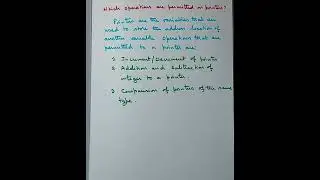 Which operations are permitted on pointers?
Pointers are the variables that are
used to store the address location of
another variable. Operations that are
permitted to a pointer are:
1 Increment/Decrement of pointer
2 Addition and Subtraction of
integer to a pointer.
3 Comparison of pointers of the same
type